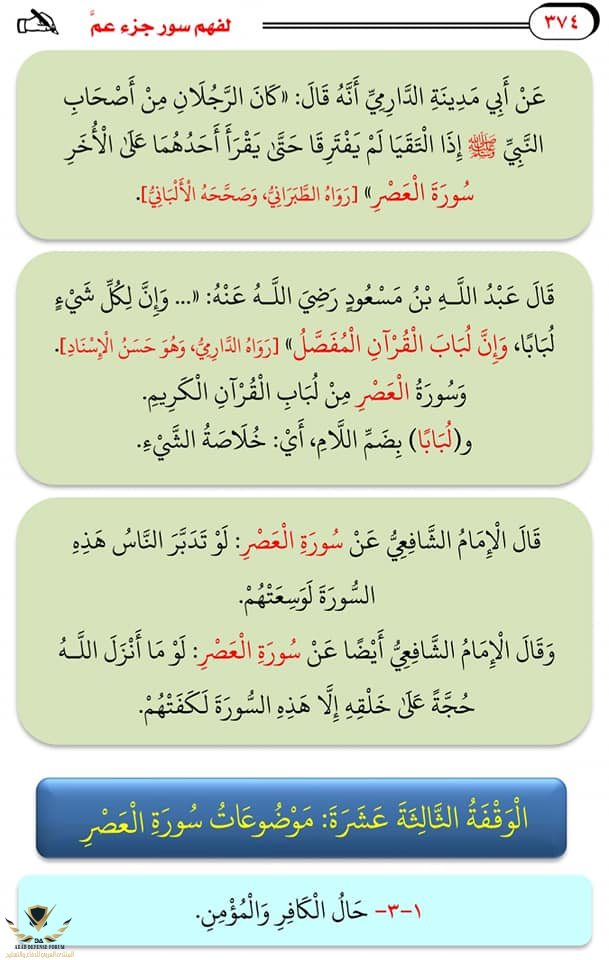 ٣٧٤
لفهم سور جزء عمَّ
عَنْ أَبِي مَدِينَةِ الدَّارِمِيِّ أَنَّهُ قَالَ: «كَانَ الرَّجُلَانِ مِنْ أَصْحَابِ
النَّبِيِّ ﷺ إِذَا الْتَقَيَا لَمْ يَفْتَرِقَا حَتَّىٰ يَقْرَأَ أَحَدُهُمَا عَلَىٰ الْأُخَرِ
سُورَةَ الْعَصْرِ» [رَوَاهُ الطَّبَرَانِيُّ، وَصَحَّحَهُ الْأَلْبَانِيُّ].
قَالَ عَبْدُ اللَّـهِ بْنُ مَسْعُودٍ رَضِيَ اللَّـهُ عَنْهُ: «... وَإِنَّ لِكُلِّ شَيْءٍ
لُبَابًا، وَإِنَّ لُبَابَ الْقُرْآنِ الْمُفَصَّلُ» [رَوَاهُ الدَّارِمِيُّ، وَهُوَ حَسَنُ الْإِسْنَادِ].
وَسُورَةُ الْعَصْرِ مِنْ لُبَابِ الْقُرْآنِ الْكَرِيمِ.
و(لُبَابًا) بِضَمِّ اللَّامِ، أَيْ: خُلَاصَةُ الشَّيْءِ.
قَالَ الْإِمَامُ الشَّافِعِيُّ عَنْ سُورَةِ الْعَصْرِ: لَوْ تَدَبَّرَ النَّاسُ هَذِهِ
السُّورَةَ لَوَسِعَتْهُمْ.
وَقَالَ الْإِمَامُ الشَّافِعِيُّ أَيْضًا عَنْ سُورَةِ الْعَصْرِ: لَوْ مَا أَنْزَلَ اللَّـهُ
حُجَّةً عَلَىٰ خَلْقِهِ إِلَّا هَذِهِ السُّورَةَ لَكَفَتْهُمْ.
الْوَقْفَةُ الثَّالِثَةَ عَشَرَةَ: مَوْضُوعَاتُ سُورَةِ الْعَصْرِ
١-٣- حَالُ الْكَافِرِ وَالْمُؤْمِنِ.
DA
ARAB DEFENSE FORUM
المنتدى العربي للدفاع والتسليح